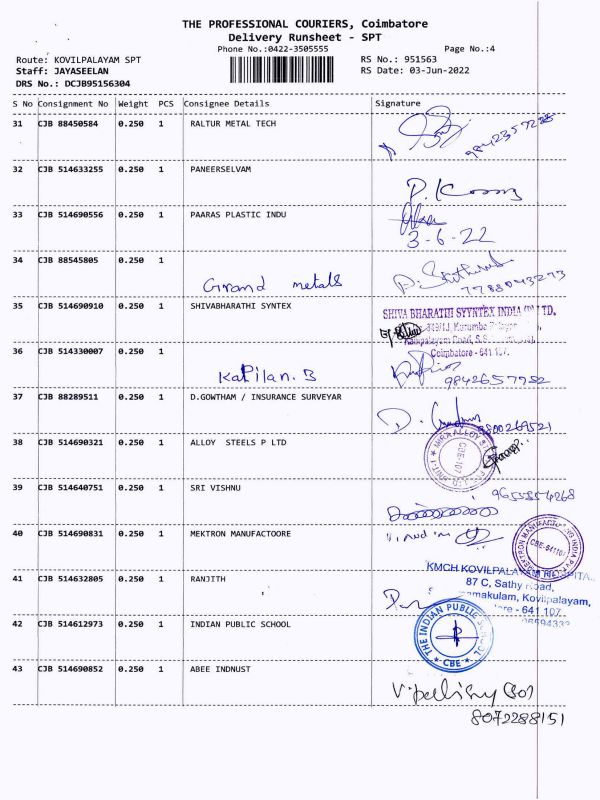 THE PROFESSIONAL COURIERS, Coimbatore
Delivery Runsheet - SPT
Phone No.:0422-3505555 Page No.:4
Route: KOVILPALAYAM SPT RS No.: 951563
Staff: JAYASEELAN RS Date: 03-Jun-2022
DRS No.: DCJB95156304
S No Consignment No Weight PCS Consignee Details Signature
31 CJB 88450584 0.250 1 RALTUR METAL TECH
32 CJB 514633255 0.250 1 PANEERSELVAM
33 CJB 514690556 0.250 1 PAARAS PLASTIC INDU
3-6-22
34 CJB 88545805 0.250 1
Grand metals
35 CJB 514690910 0.250 1 SHIVABHARATHI SYNTEX
SHIVA BHARATHI SYYNTEX INDIA (P) LTD.
Coimbatore - 641 107.
36 CJB 514330007 0.250 1
Kapilan. B
9842657952
37 CJB 88289511 0.250 1 D.GOWTHAM / INSURANCE SURVEYAR
38 CJB 514690321 0.250 1 ALLOY STEELS P LTD
39 CJB 514640751 0.250 1 SRI VISHNU
9655854268
40 CJB 514690831 0.250 1 MEKTRON MANUFACTOORE
41 CJB 514632805 0.250 1 RANJITH
KMCH KOVILPALAYAM
87 C, Sathy Road,
Kovilpalayam,
641 107
42 CJB 514612973 0.250 1 INDIAN PUBLIC SCHOOL
THE INDIAN PUBLIC SCHOOL
CBE
43 CJB 514690852 0.250 1 ABEE INDNUST
8072288151